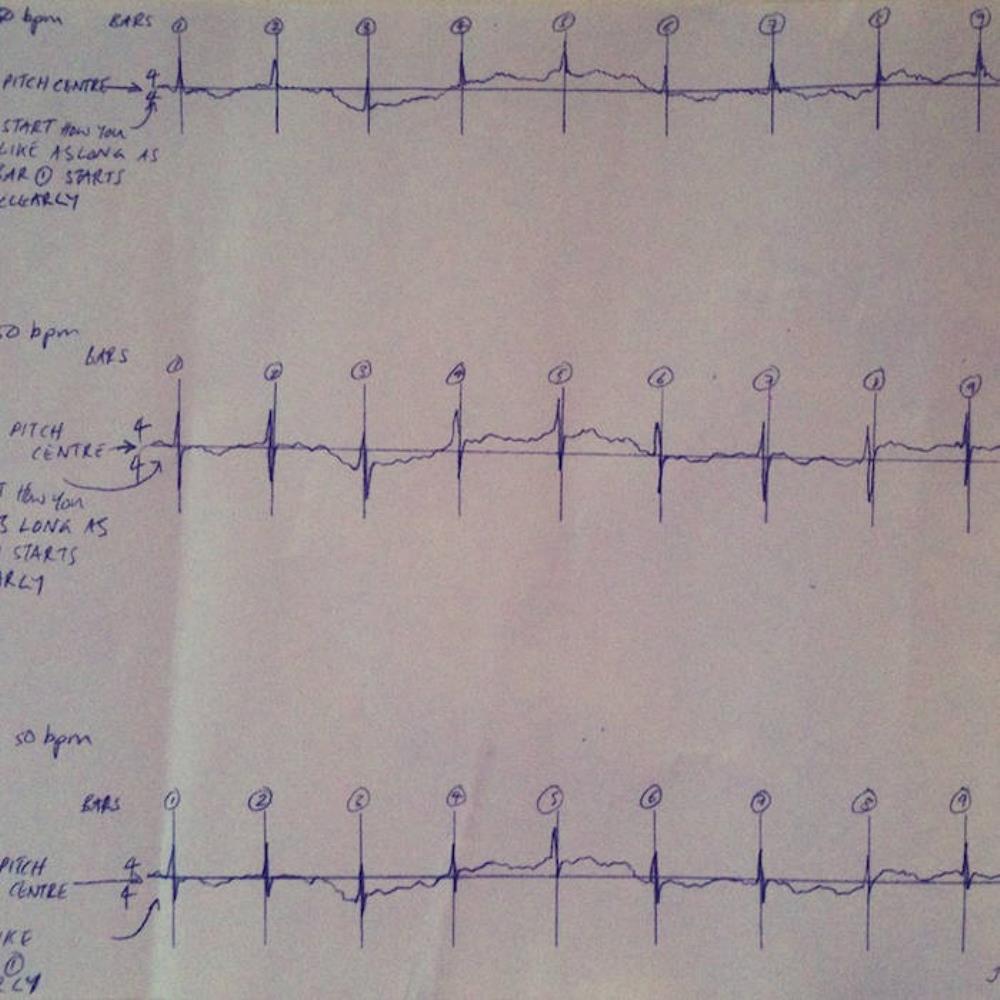 0 bpm BARS ① ② ③ ④ ⑤ ⑥ ⑦ ⑧ ⑨
PITCH CENTRE → 4
4
START HOW YOU
LIKE AS LONG AS
BAR ① STARTS
CLEARLY
50 bpm
BARS ① ② ③ ④ ⑤ ⑥ ⑦ ⑧ ⑨
PITCH 4
CENTRE → 4
T HOW YOU
S LONG AS
STARTS
ARLY
50 bpm
BARS ① ② ③ ④ ⑤ ⑥ ⑦ ⑧ ⑨
PITCH 4
CENTRE 4
IKE
①
RLY